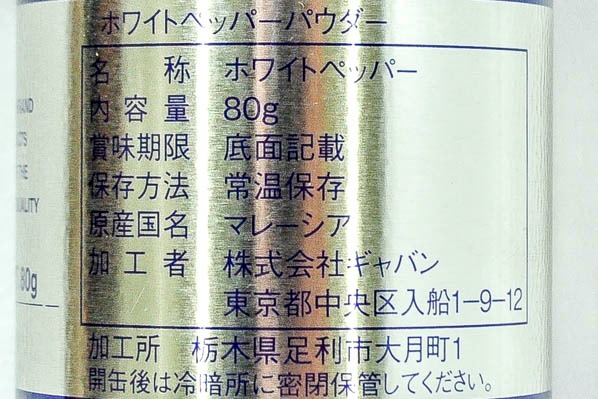 ホワイトペッパーパウダー
名称 ホワイトペッパー
内容量 80g
賞味期限 底面記載
保存方法 常温保存
原産国名 マレーシア
加工者 株式会社ギャバン
東京都中央区入船1-9-12
加工所 栃木県足利市大月町1
開缶後は冷暗所に密閉保管してください。
80g